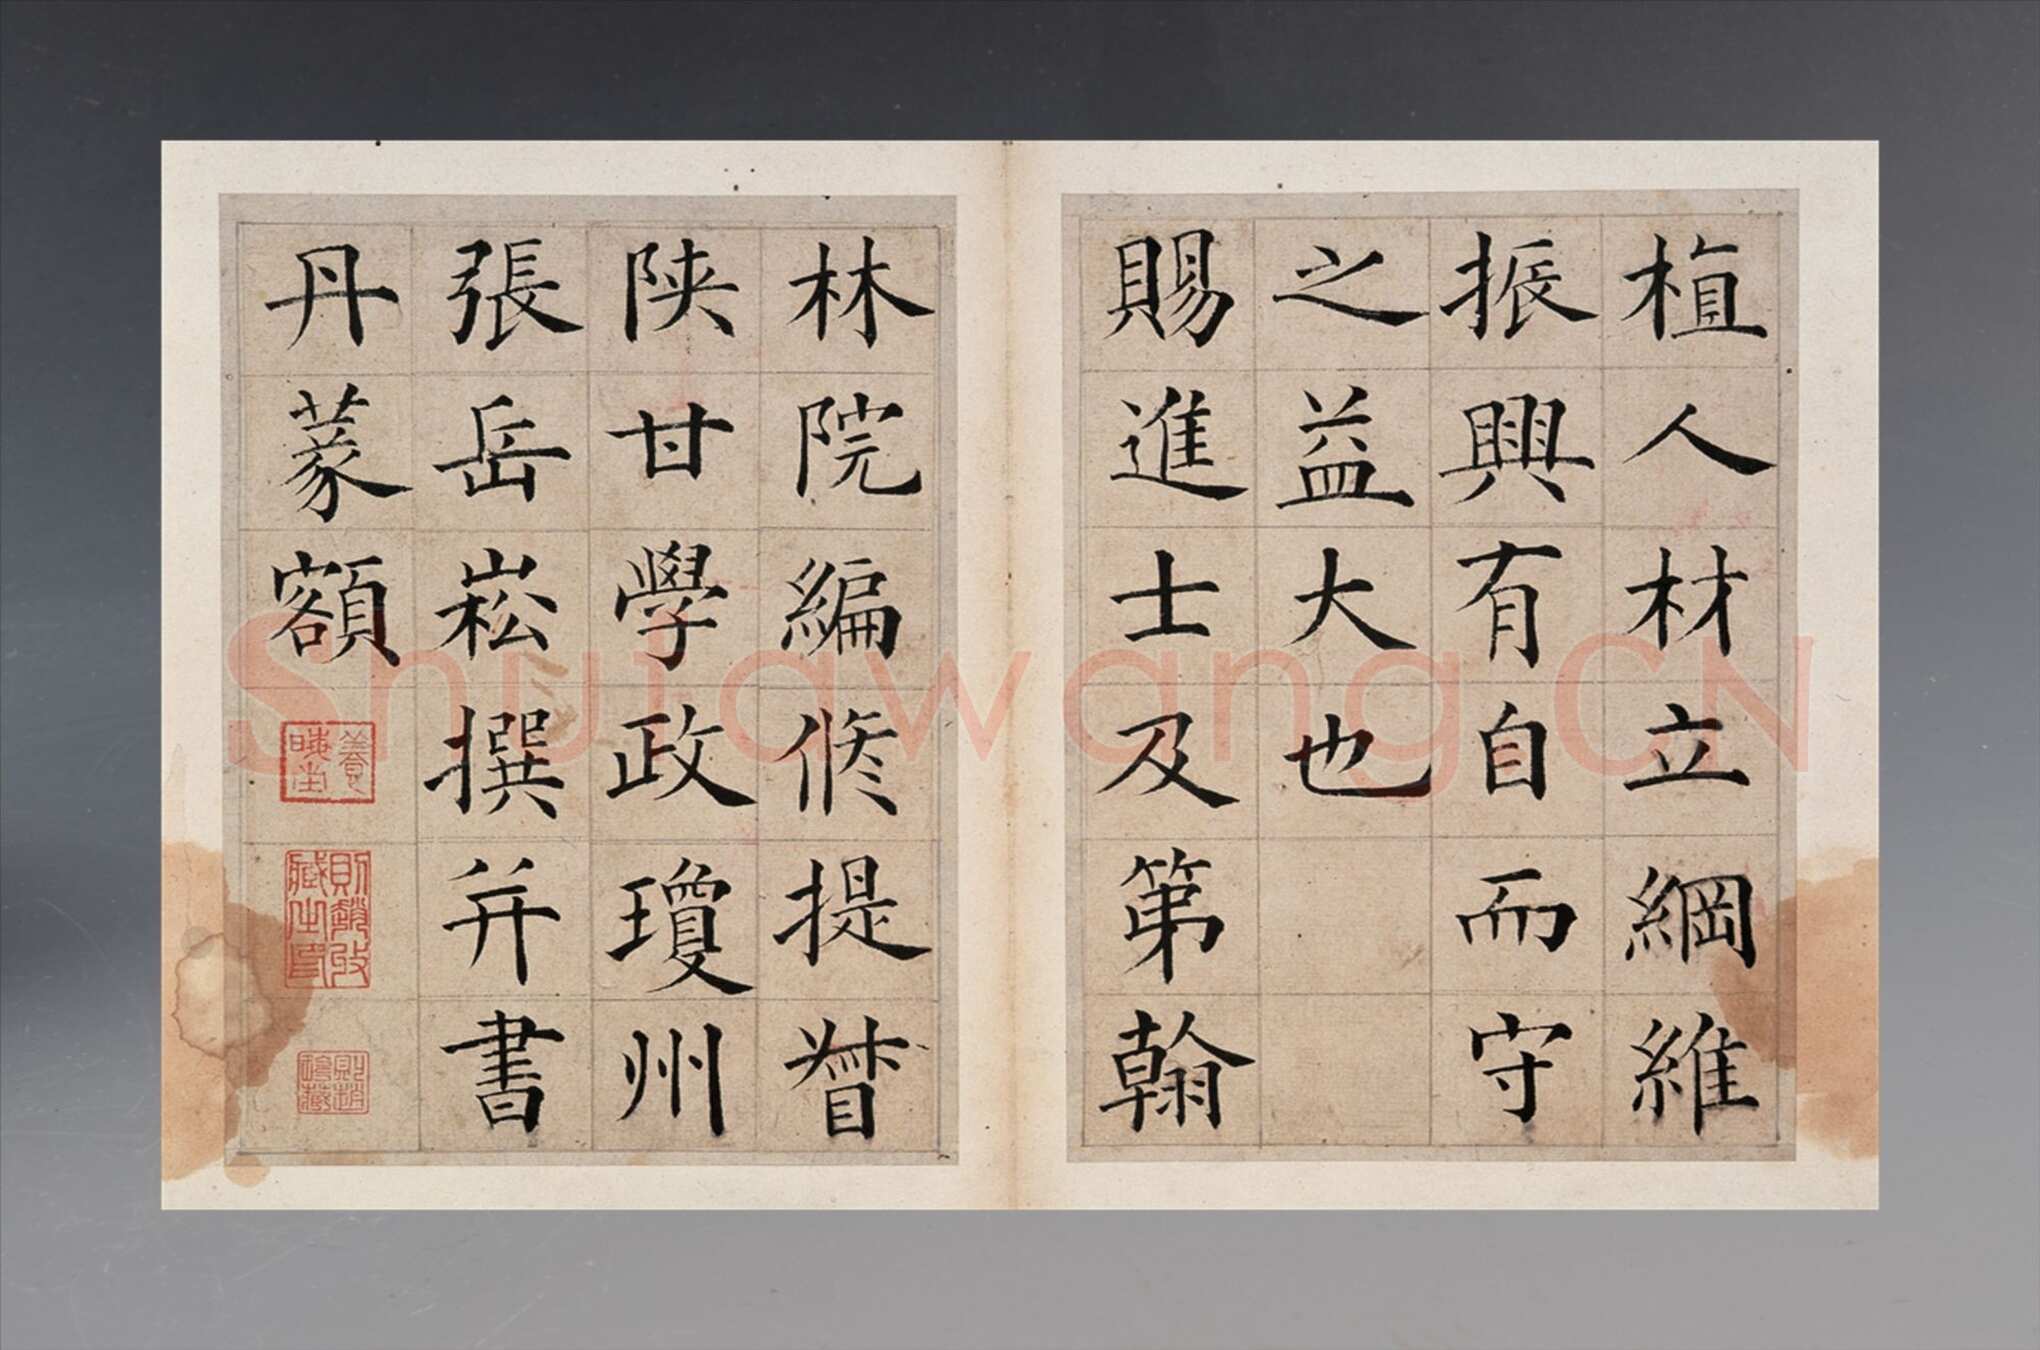 植人材立綱維
振興有自而守
之益大也
賜進士及第翰
林院編修提督
陕甘學政瓊州
張岳崧撰并書
丹篆額
Shufawang.CN